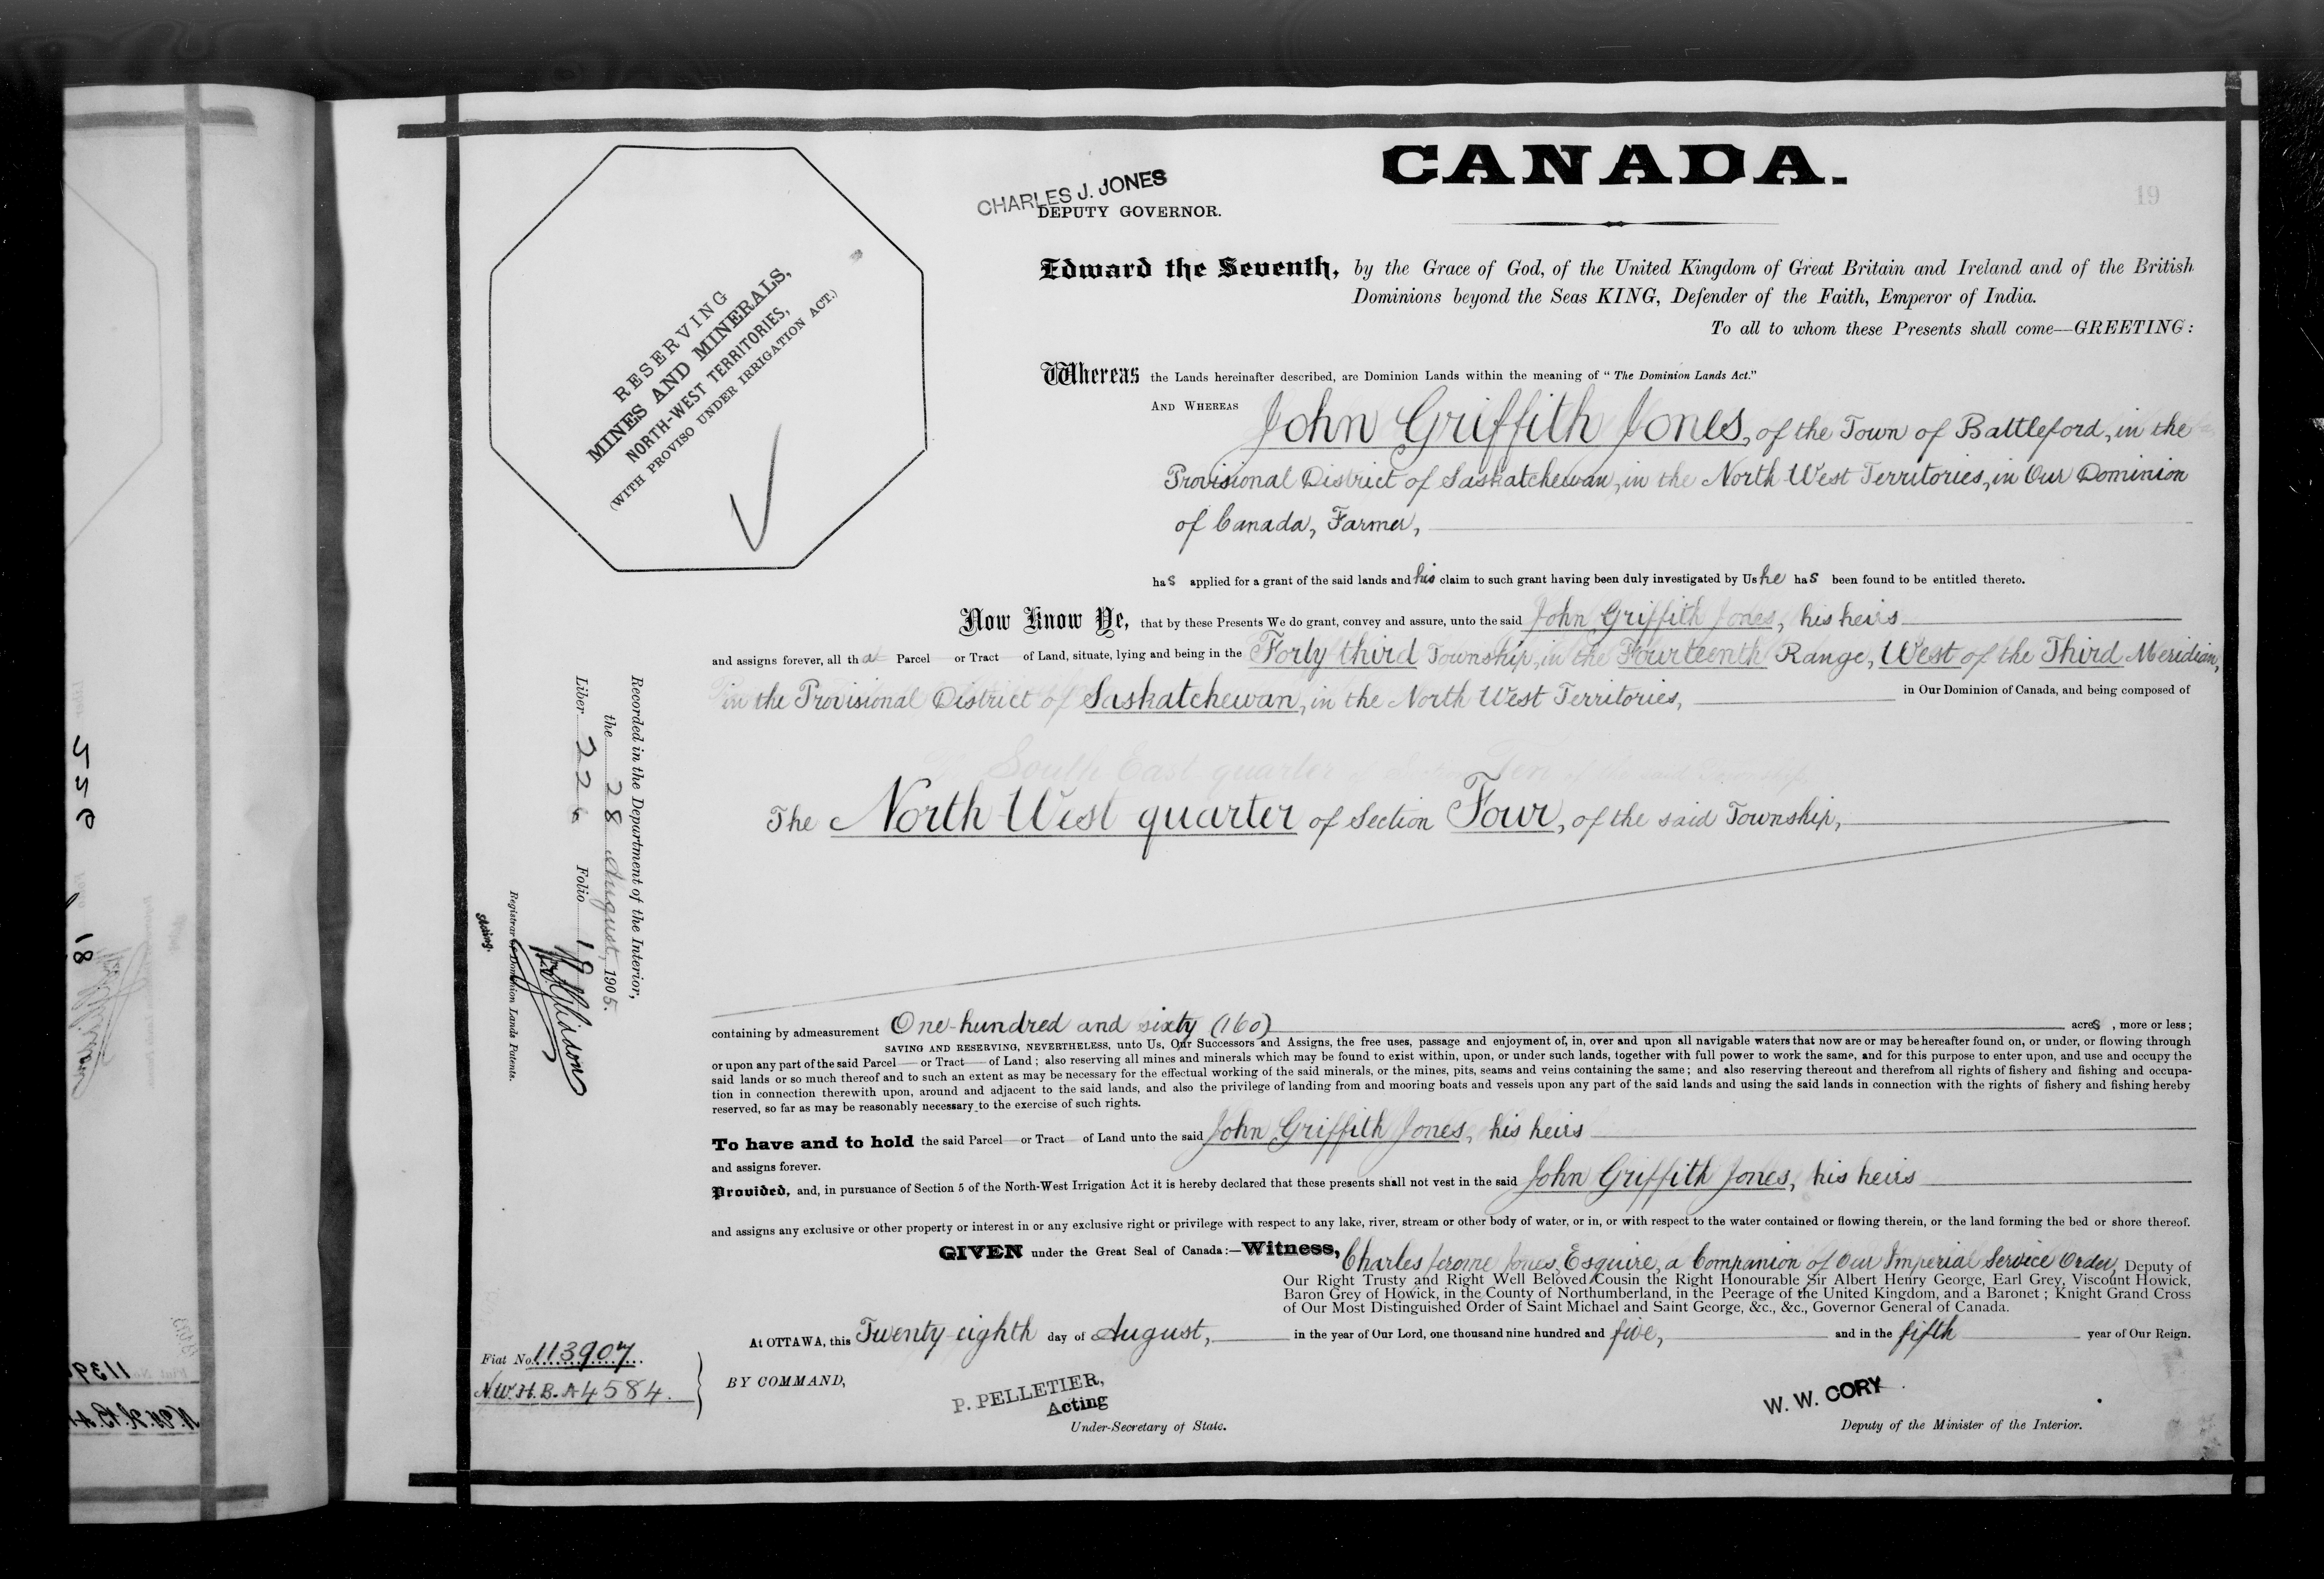 CANADA.
19
CHARLES J. JONES
DEPUTY GOVERNOR.
RESERVING
MINES AND MINERALS,
NORTH-WEST TERRITORIES,
(WITH PROVISO UNDER IRRIGATION ACT.)
Edward the Seventh, by the Grace of God, of the United Kingdom of Great Britain and Ireland and of the British
Dominions beyond the Seas KING, Defender of the Faith, Emperor of India.
To all to whom these Presents shall come—GREETING:
Whereas the Lands hereinafter described, are Dominion Lands within the meaning of "The Dominion Lands Act."
AND WHEREAS John Griffith Jones, of the Town of Battleford, in the
Provisional District of Saskatchewan, in the North West Territories, in Our Dominion
of Canada, Farmer,
has applied for a grant of the said lands and his claim to such grant having been duly investigated by Us he has been found to be entitled thereto.
Now Know Ye, that by these Presents We do grant, convey and assure, unto the said John Griffith Jones, his heirs
and assigns forever, all that Parcel or Tract of Land, situate, lying and being in the Forty third Township, in the Fourteenth Range, West of the Third Meridian,
in the Provisional District of Saskatchewan, in the North West Territories, in Our Dominion of Canada, and being composed of
The North West quarter of Section Four, of the said Township,
containing by admeasurement One hundred and sixty (160) acres, more or less;
SAVING AND RESERVING, NEVERTHELESS, unto Us, Our Successors and Assigns, the free uses, passage and enjoyment of, in, over and upon all navigable waters that now are or may be hereafter found on, or under, or flowing through
or upon any part of the said Parcel or Tract of Land; also reserving all mines and minerals which may be found to exist within, upon, or under such lands, together with full power to work the same, and for this purpose to enter upon, and use and occupy the
said lands or so much thereof and to such an extent as may be necessary for the effectual working of the said minerals, or the mines, pits, seams and veins containing the same; and also reserving thereout and therefrom all rights of fishery and fishing and occupa-
tion in connection therewith upon, around and adjacent to the said lands, and also the privilege of landing from and mooring boats and vessels upon any part of the said lands and using the said lands in connection with the rights of fishery and fishing hereby
reserved, so far as may be reasonably necessary to the exercise of such rights.
To have and to hold the said Parcel or Tract of Land unto the said John Griffith Jones, his heirs
and assigns forever.
Provided, and, in pursuance of Section 5 of the North-West Irrigation Act it is hereby declared that these presents shall not vest in the said John Griffith Jones, his heirs
and assigns any exclusive or other property or interest in or any exclusive right or privilege with respect to any lake, river, stream or other body of water, or in, or with respect to the water contained or flowing therein, or the land forming the bed or shore thereof.
GIVEN under the Great Seal of Canada:—Witness, Charles Jerome Jones, Esquire, a Companion of Our Imperial Service Order, Deputy of
Our Right Trusty and Right Well Beloved Cousin the Right Honourable Sir Albert Henry George, Earl Grey, Viscount Howick,
Baron Grey of Howick, in the County of Northumberland, in the Peerage of the United Kingdom, and a Baronet; Knight Grand Cross
of Our Most Distinguished Order of Saint Michael and Saint George, &c., &c., Governor General of Canada.
At OTTAWA, this Twenty eighth day of August, in the year of Our Lord, one thousand nine hundred and five, and in the fifth year of Our Reign.
BY COMMAND,
P. PELLETIER,
Acting
Under-Secretary of State.
W. W. CORY
Deputy of the Minister of the Interior.
Fiat No. 113907
N.W.H.B. A4584.
Recorded in the Department of the Interior,
the 28 August, 1905.
Liber 226 Folio 19
Registrar of Dominion Lands Patents.
Acting.